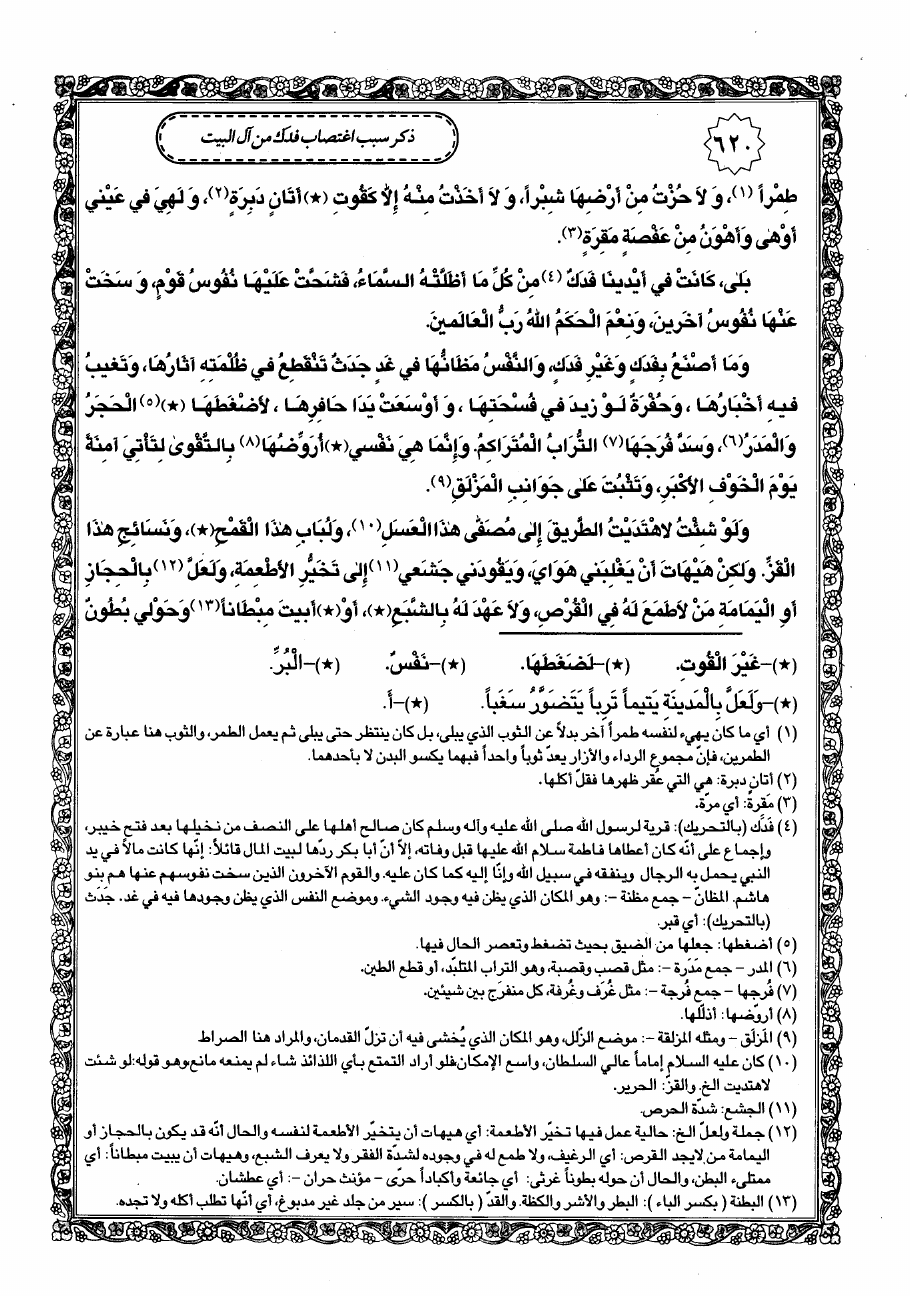 ٦٢٠
ذكر سبب اغتصاب فدك من آل البيت
طِمْراً (١)، وَ لاَ حُزْتُ مِنْ أَرْضِهَا شِبْراً، وَ لاَ أَخَذْتُ مِنْهُ إِلاَّ كَقُوتِ (★) أَتَانٍ دَبِرَةٍ(٢)، وَ لَهِيَ في عَيْني
أَوْهى وَأَهْوَنُ مِنْ عَفْصَةٍ مَقِرَةٍ(٣).
بَلى، كَانَتْ في أَيْدينَا فَدَكٌ (٤) مِنْ كُلِّ مَا أَظَلَّتْهُ السَّمَاءُ، فَشَحَّتْ عَلَيْهَا نُفُوسُ قَوْمٍ، وَ سَخَتْ
عَنْهَا نُفُوسُ آخَرينَ، وَنِعْمَ الْحَكَمُ اللهُ رَبُّ الْعَالَمينَ.
وَمَا أَصْنَعُ بِفَدَكٍ وَغَيْرِ فَدَكٍ، وَالنَّفْسُ مَظَانُّهَا في غَدٍ جَدَثٌ تَنْقَطِعُ في ظُلْمَتِهِ آثَارُهَا، وَتَغيبُ
فيهِ أَخْبَارُهَا ، وَحُفْرَةٌ لَوْ زيدَ في فُسْحَتِهَا ، وَ أَوْسَعَتْ يَدَا حَافِرِهَا ، لأَضْغَطَهَا (★)(٥) الْحَجَرُ
وَالْمَدَرُ(٦)، وَسَدَّ فُرَجَهَا(٧) التُّرَابُ الْمُتَرَاكِمُ. وَإِنَّمَا هِيَ نَفْسي(★)أُرَوِّضُهَا(٨) بِالتَّقْوى لِتَأْتِيَ آمِنَةً
يَوْمَ الْخَوْفِ الأَكْبَرِ، وَتَثْبُتَ عَلى جَوَانِبِ الْمَزْلَقِ(٩).
وَلَوْ شِئْتُ لاَهْتَدَيْتُ الطَّريقَ إِلى مُصَفّى هذَا الْعَسَلِ(١٠)، وَلُبَابِ هذَا الْقَمْحِ(★)، وَنَسَائِجِ هذَا
الْقَزِّ. وَلكِنْ هَيْهَاتَ أَنْ يَغْلِبَني هَوَايَ، وَيَقُودَني جَشَعي(١١)إِلى تَخَيُّرِ الأَطْعِمَةِ، وَلَعَلَّ(١٢) بِالْحِجَازِ
أَوِ الْيَمَامَةِ مَنْ لاَطَمَعَ لَهُ فِي الْقُرْصِ، وَلاَ عَهْدَ لَهُ بِالشِّبَعِ(★)، أَوْ(★) أَبيتَ مِبْطَاناً(١٣)وَحَوْلي بُطُونٌ
(★)-غَيْرَ الْقُوتِ. (★)-لَضَغَطَهَا. (★)-نَفْسٌ. (★)-الْبُرِّ.
(★)-وَلَعَلَّ بِالْمَدينَةِ يَتيماً تَرِباً يَتَضَوَّرُ سَغَباً. (★)-أَ.
(١) أي ما كان يهيء لنفسه طمراً آخر بدلاً عن الثوب الذي يبلى، بل كان ينتظر حتى يبلى ثم يعمل الطمر، والثوب هنا عبارة عن
الطمرين، فإنّ مجموع الرداء والأزار يعدّ ثوباً واحداً فبهما يكسو البدن لا بأحدهما.
(٢) أتان دبرة: هي التي عقر ظهرها فقلّ أكلها.
(٣) مَقِرة: أي مرّة.
(٤) فَدَك (بالتحريك): قرية لرسول الله صلى الله عليه وآله وسلم كان صالح أهلها على النصف من نخيلها بعد فتح خيبر،
وإجماع على أنّه كان أعطاها فاطمة سلام الله عليها قبل وفاته، إلاّ أنّ أبا بكر ردّها لبيت المال قائلاً: إنّها كانت مالاً في يد
النبي يحمل به الرجال وينفقه في سبيل الله وإنّا إليه كما كان عليه. والقوم الآخرون الذين سخت نفوسهم عنها هم بنو
هاشم. المظانّ - جمع مظنة -: وهو المكان الذي يظن فيه وجود الشيء. وموضع النفس الذي يظن وجودها فيه في غد. جَدَث
(بالتحريك): أي قبر.
(٥) أضغطها: جعلها من الضيق بحيث تضغط وتعصر الحال فيها.
(٦) المدر - جمع مَدَرة -: مثل قصب وقصبة، وهو التراب المتلبّد، أو قطع الطين.
(٧) فُرجها - جمع فُرجة -: مثل غُرَف وغُرفة، كل منفرَج بين شيئين.
(٨) أروّضها: أذلّلها.
(٩) المَزلَق - ومثله المزلقة -: موضع الزّلل، وهو المكان الذي يُخشى فيه أن تزلّ القدمان، والمراد هنا الصراط
(١٠) كان عليه السلام إماماً عالي السلطان، واسع الإمكان،فلو أراد التمتع بأي اللذائذ شاء لم يمنعه مانع،وهو قوله:لو شئت
لاهتديت الخ. والقزّ: الحرير.
(١١) الجشع: شدّة الحرص.
(١٢) جملة ولعلّ الخ: حالية عمل فيها تخيّر الأطعمة: أي هيهات أن يتخيّر الأطعمة لنفسه والحال أنّه قد يكون بالحجاز أو
اليمامة من لايجد القرص: أي الرغيف، ولا طمع له في وجوده لشدّة الفقر ولا يعرف الشبع، وهيهات أن يبيت مبطاناً: أي
ممتلىء البطن، والحال أن حوله بطوناً غرثى: أي جائعة وأكباداً حرّى - مؤنث حران -: أي عطشان.
(١٣) البطنة ( بكسر الباء ): البطر والأشر والكظة. والقدّ ( بالكسر ): سير من جلد غير مدبوغ، أي أنّها تطلب أكله ولا تجده.